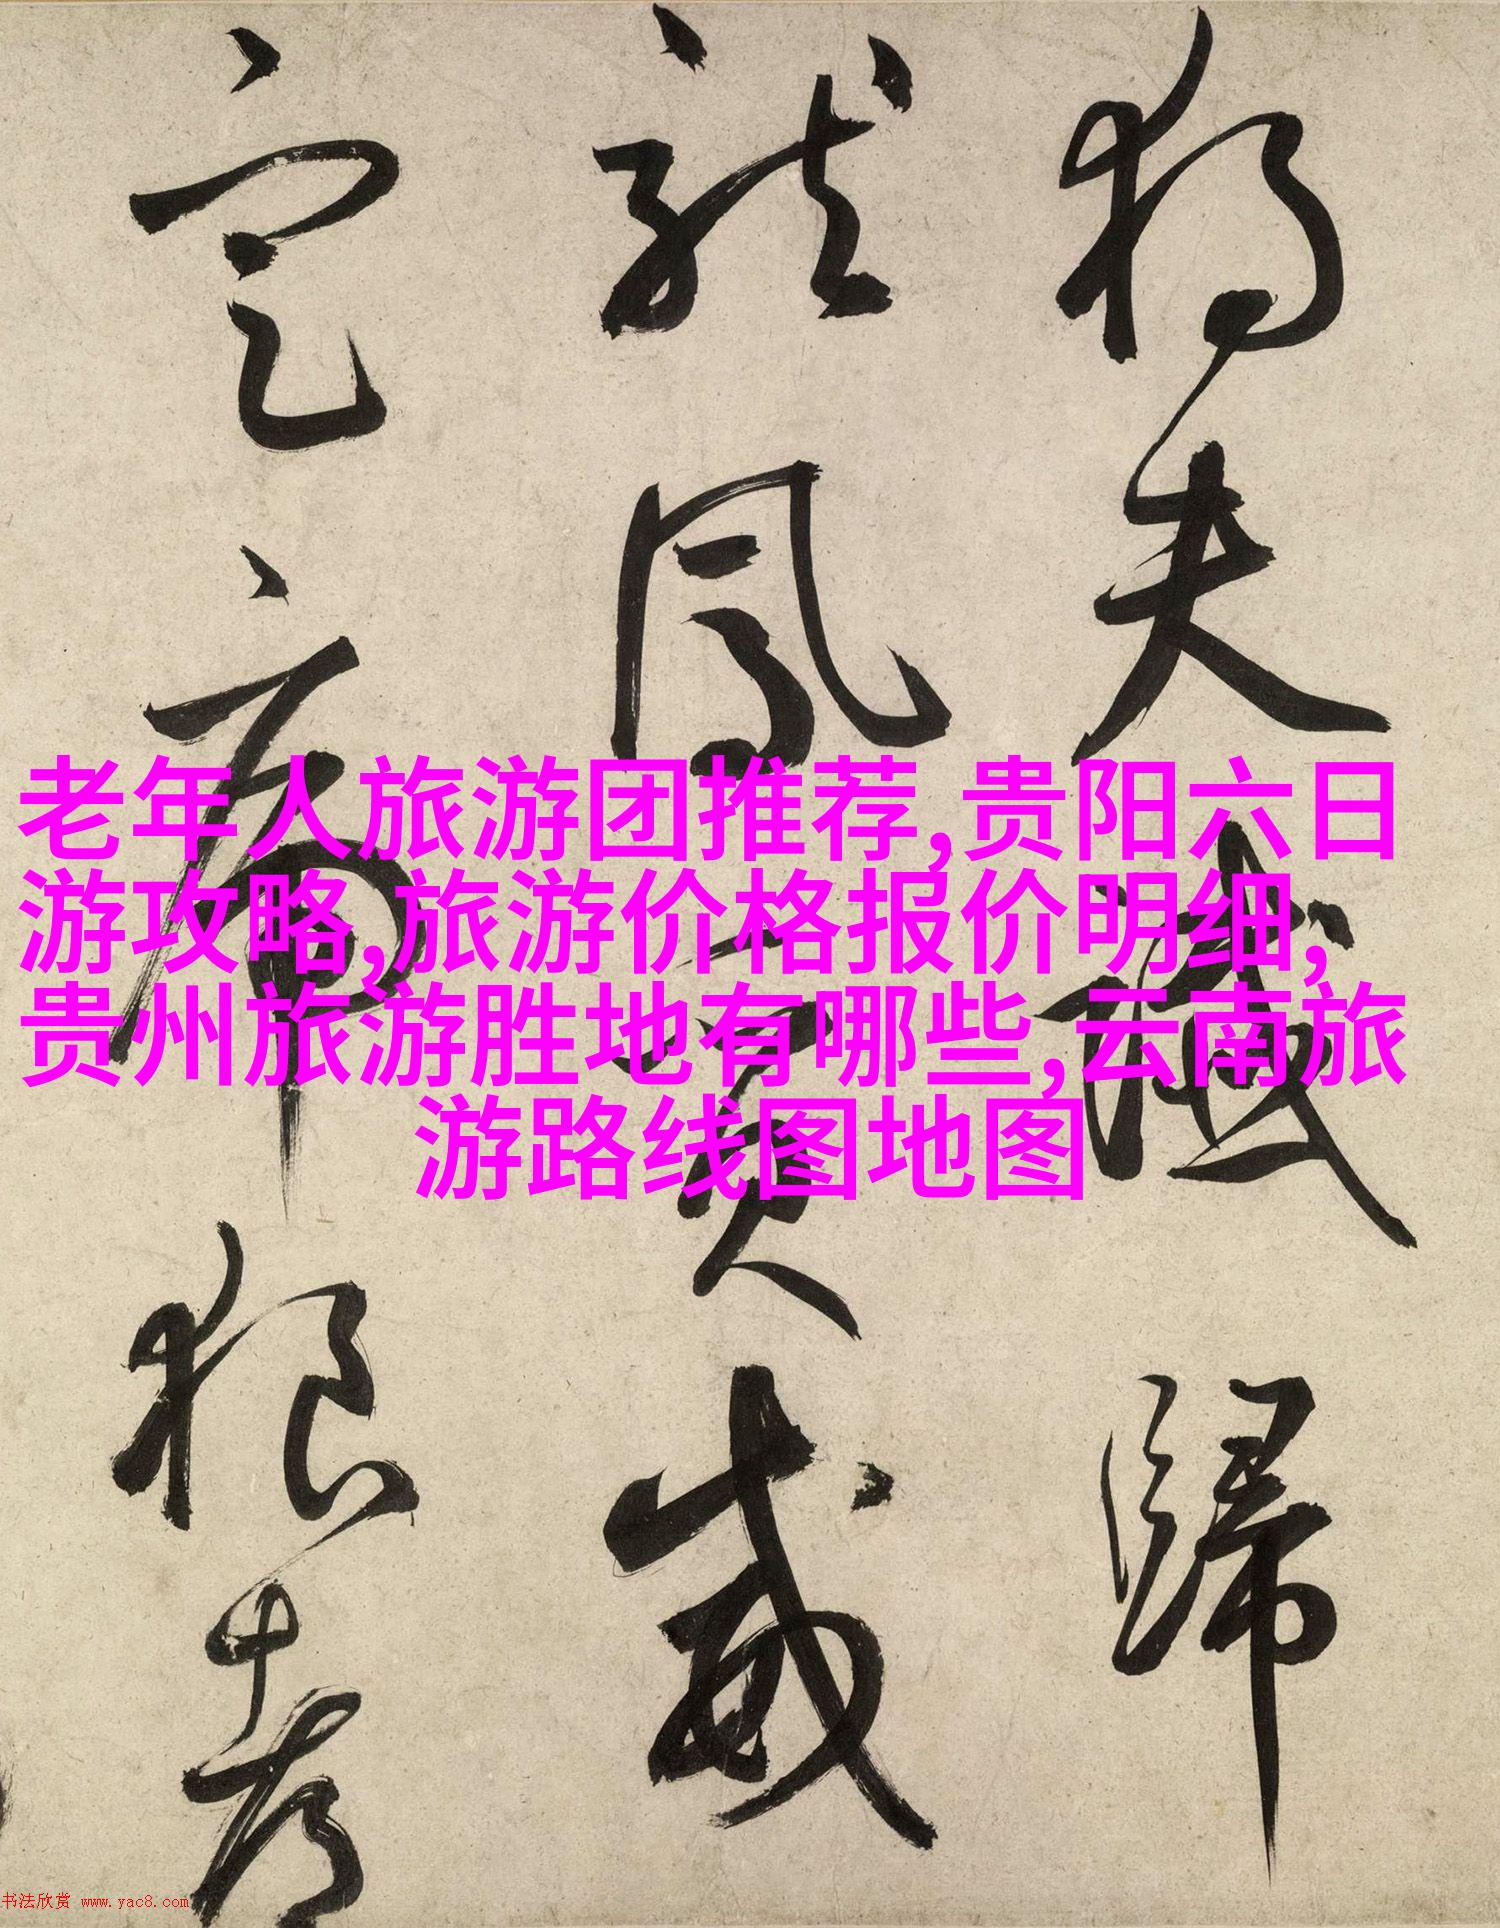 獨夫讖歸
龍鳳質威
定虎狼都
老年人旅游团推荐,贵阳六日
游攻略,旅游价格报价明细,
贵州旅游胜地有哪些,云南旅
游路线图地图
书法欣赏 www.yac8.com